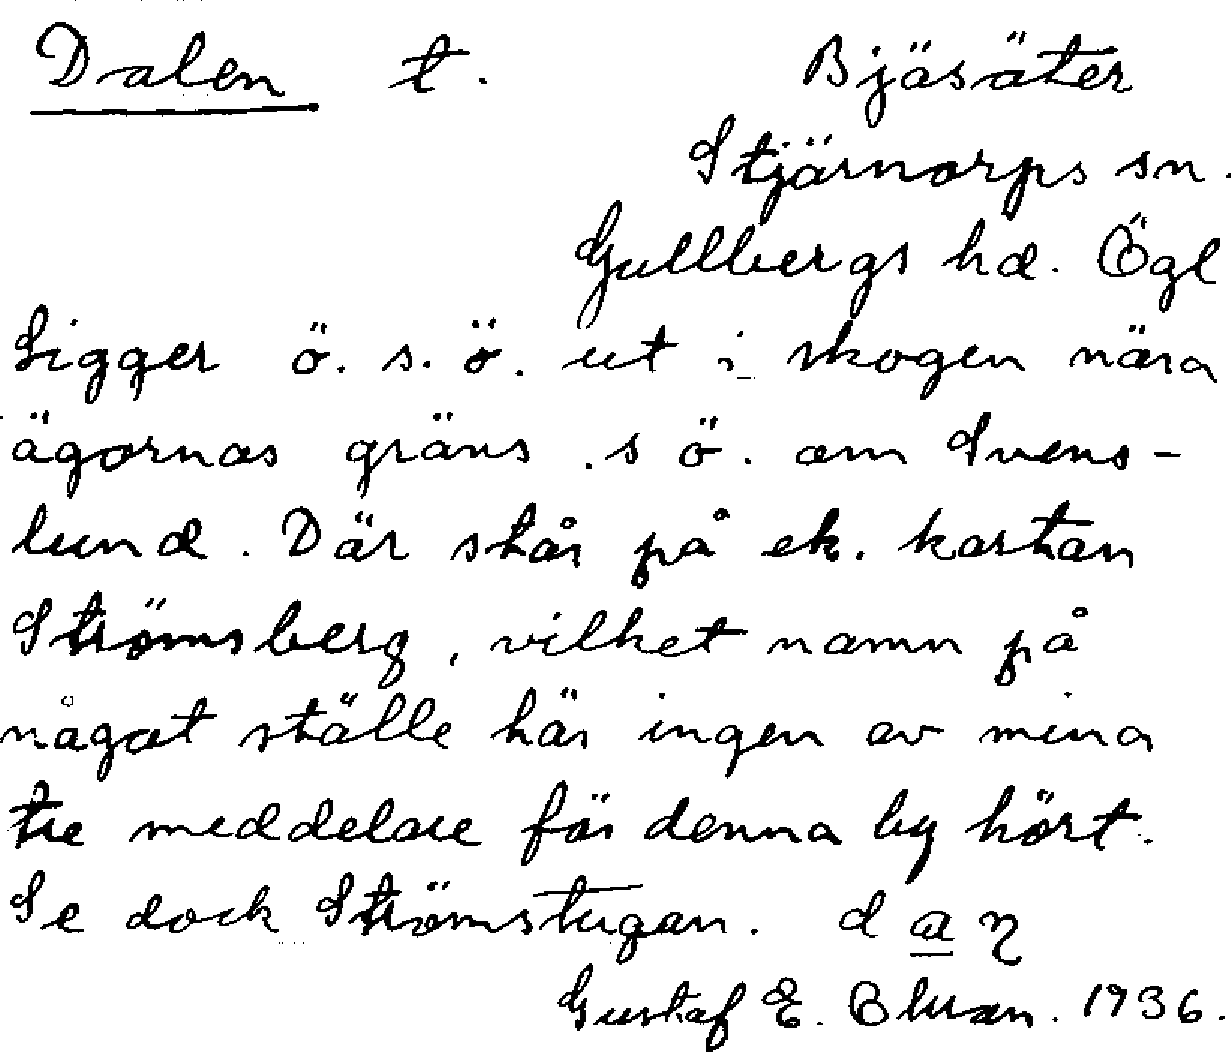 Dalen t. Bjäsäter
Stjärnorps sn.
Gullbergs hd. Ögl
Ligger ö. s. ö. ut i skogen nära
ägornas gräns . s ö. om Svens-
lund. Där står på ek. kartan
Strömsberg, vilket namn på
något ställe här ingen av mina
tre meddelare för denna by hört.
Se dock Strömstugan. d a
Gustaf E. 1936.